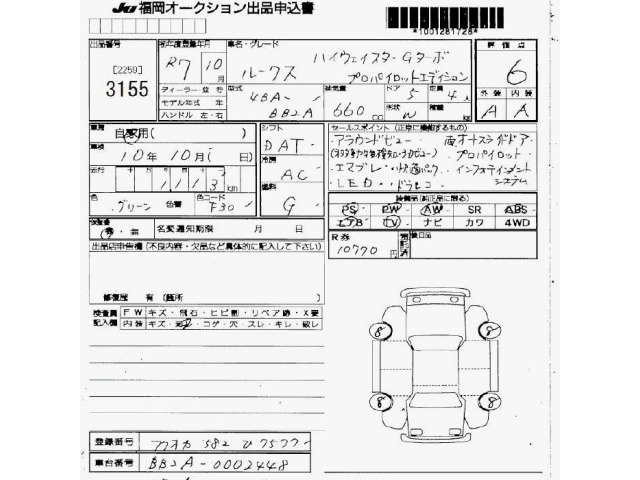 JU 福岡オークション出品申込書
*1001281728*
出品番号
[2259]
3155
初年度登録年月
R7年 10月
車名・グレード
ルークス ハイウェイスターGターボ
プロパイロットエディション
評価点
6
外装 内装
A A
ディーラー型
モデル年式 年
ハンドル 左・右
型式
4BA-
BB2A
排気量
660 cc
ドア
5
定員
4人
形状
積載
kg
車歴
自家用( )
車検
10年 10月( 日)
走行
113 km
シフト
DAT
冷房
AC
燃料
G
色
グリーン 色替
色コード
F30
セールスポイント (正常に機能するもの)
アラウンドビュー 両オートスライドドア
プロパイロット
エマブレ 快適パック インフォテイメント
システム
LED ドラレコ
装備品(純正品に限る)
PS PW AW SR ABS
エアB TV ナビ カワ 4WD
有・無 名変通知期限 月 日
R券
10770円
後日品
出品店申告欄(不良内容・欠品など具体的に記入して下さい)
修復歴 有 (箇所
検査員
記入欄
FW キズ・飛石・ヒビ割・リペア跡・X要
内装 キズ・コゲ・穴・スレ・キレ・破レ
8 8
8 8
登録番号
フクオカ 582 ひ 7577
車台番号
BB2A-0002448